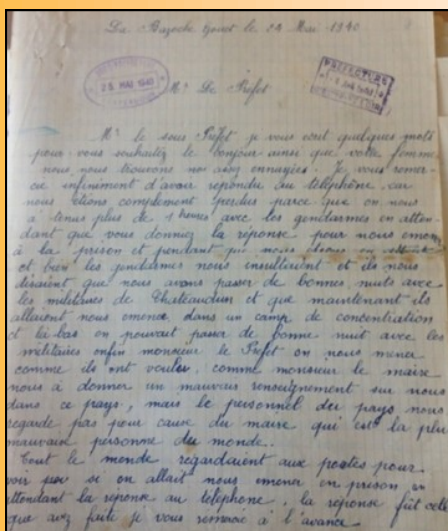 La Bazoche Gouet le 24 Mai 1940
28 MAI 1940
PREFECTURE
Mr Le Préfet
Mr le sous Préfet je vous ecrit quelques mots
pour vous souhaitez le bonjour ainsi que votre femme
nous nous trouvons assez ennuyées. Je vous remer-
cie infiniment d'avoir repondu au telephone car
nous étions complement perdus parce que on nous
a tenus plus de heures avec les gendarmes en atten-
dant que vous donniez la réponse pour nous emener
à la prison et pendant que nous étions en
et bien les gendarmes nous insultaient et ils nous
disaient que nous avons passer de bonnes nuits avec
les militaires de Chateaudun et que maintenant ils
allaient nous emener dans un camp de concentration
et là-bas on pouvait passer de bonne nuit avec les
militaires enfin monsieur le Préfet on nous mener
comme ils ont voulus, comme monsieur le maire
nous à donner un mauvais renseignement sur nous
dans ce pays, mais le personnel du pays nous
regarde pas pour cause du maire qui est la plu
mauvaise personne du monde.
Tout le monde regardaient aux portes pour
voir si on allait nous emener en prison, en
attendant la reponse au telephone, la reponse fût celle
que avez faite je vous remercie à l'avance.